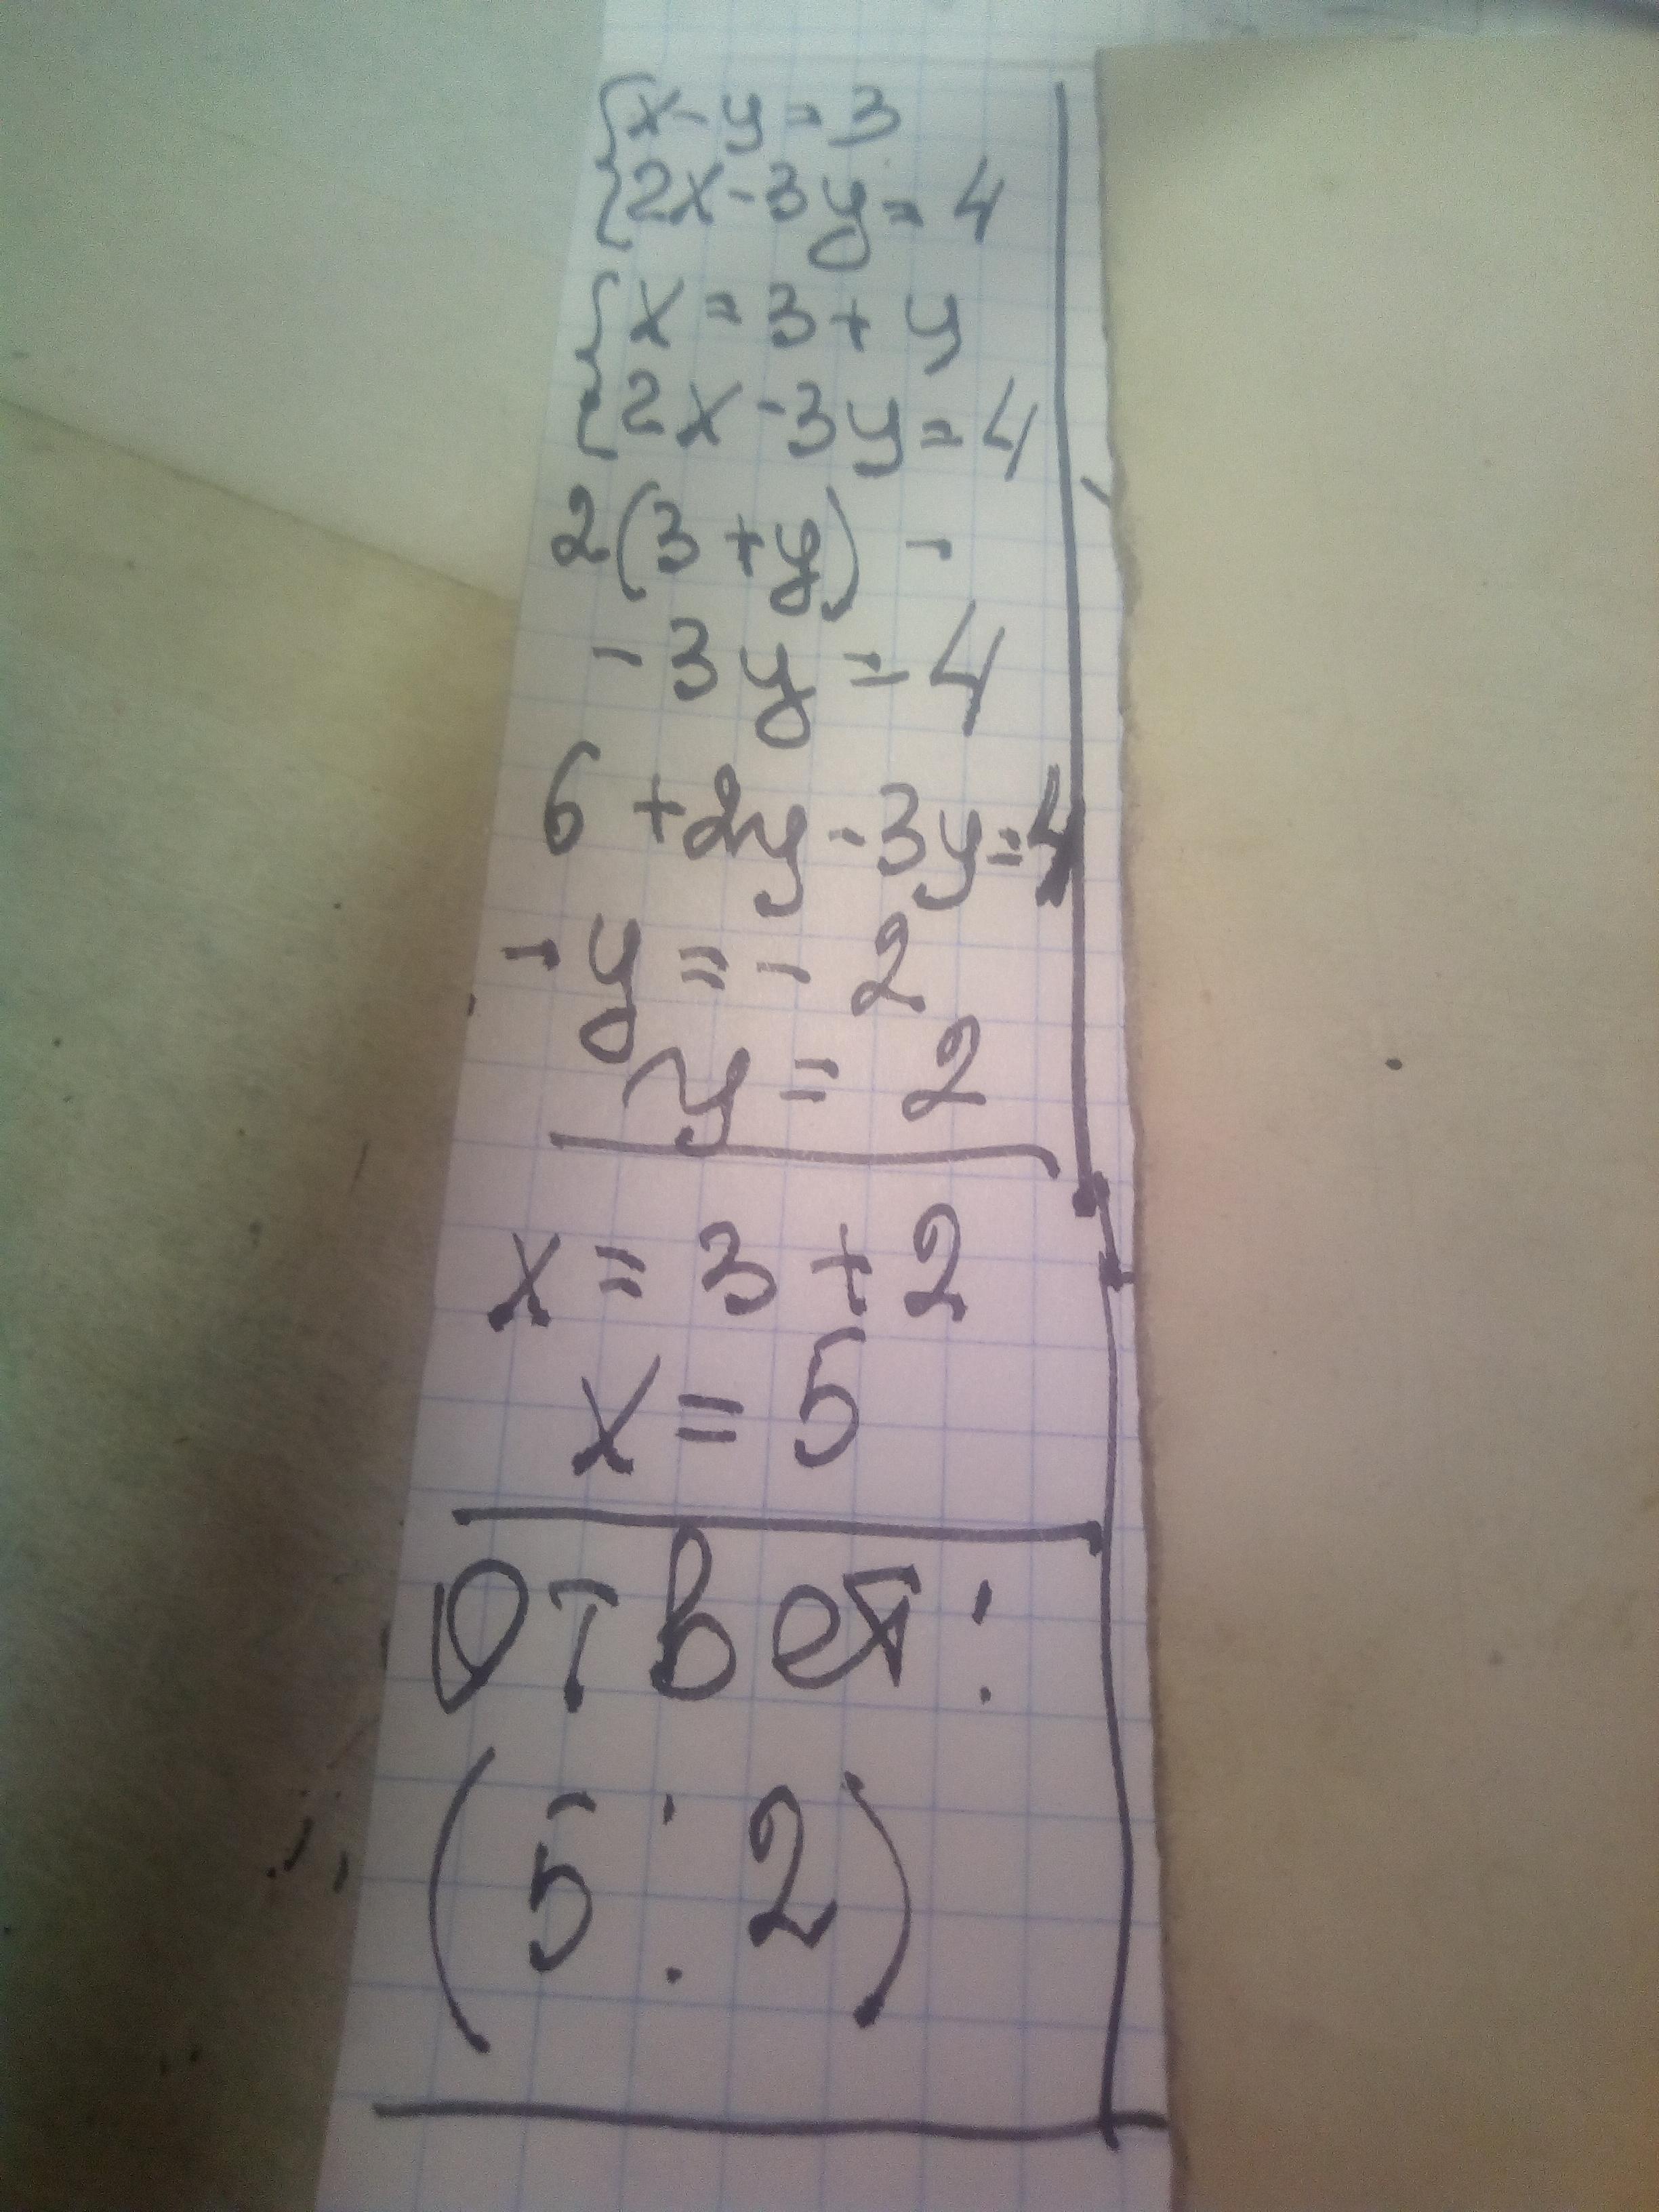 {x-y=3
{2x-3y=4
{x=3+y
{2x-3y=4
2(3+y) -
-3y=4
6+2y-3y=4
-y=-2
y=2
x=3+2
x=5
Ответ:
(5:2)